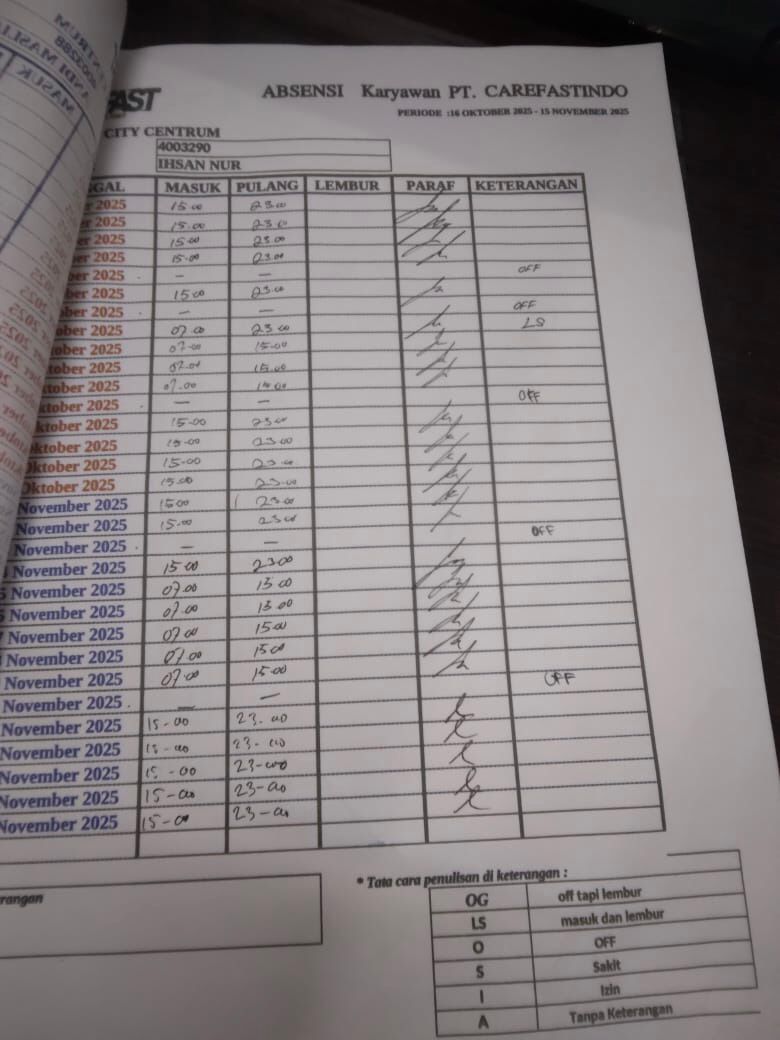 FAST
ABSENSI Karyawan PT. CAREFASTINDO
PERIODE :16 OKTOBER 2025 - 15 NOVEMBER 2025
CITY CENTRUM
4003290
IHSAN NUR
GGAL MASUK PULANG LEMBUR PARAF KETERANGAN
r 2025 15.00 23.00
er 2025 15.00 23.00
er 2025 15.00 23.00
ber 2025 15.00 23.00
ber 2025 — — OFF
ber 2025 15.00 23.00
ober 2025 — — OFF
ober 2025 07.00 23.00 LS
ober 2025 07.00 15.00
ober 2025 07.00 15.00
tober 2025 07.00 15.00
ktober 2025 — — OFF
ktober 2025 15.00 23.00
ktober 2025 15.00 23.00
Oktober 2025 15.00 23.00
Oktober 2025 15.00 23.00
November 2025 15.00 23.00
November 2025 15.00 23.00
November 2025 — — OFF
November 2025 15.00 23.00
5 November 2025 07.00 15.00
6 November 2025 07.00 15.00
7 November 2025 07.00 15.00
November 2025 07.00 15.00
November 2025 07.00 15.00
November 2025 — — OFF
November 2025 15-00 23-00
November 2025 15-00 23-00
November 2025 15-00 23-00
November 2025 15-00 23-00
November 2025 15-00 23-00
rangan
* Tata cara penulisan di keterangan :
OG off tapi lembur
LS masuk dan lembur
O OFF
S Sakit
I Izin
A Tanpa Keterangan